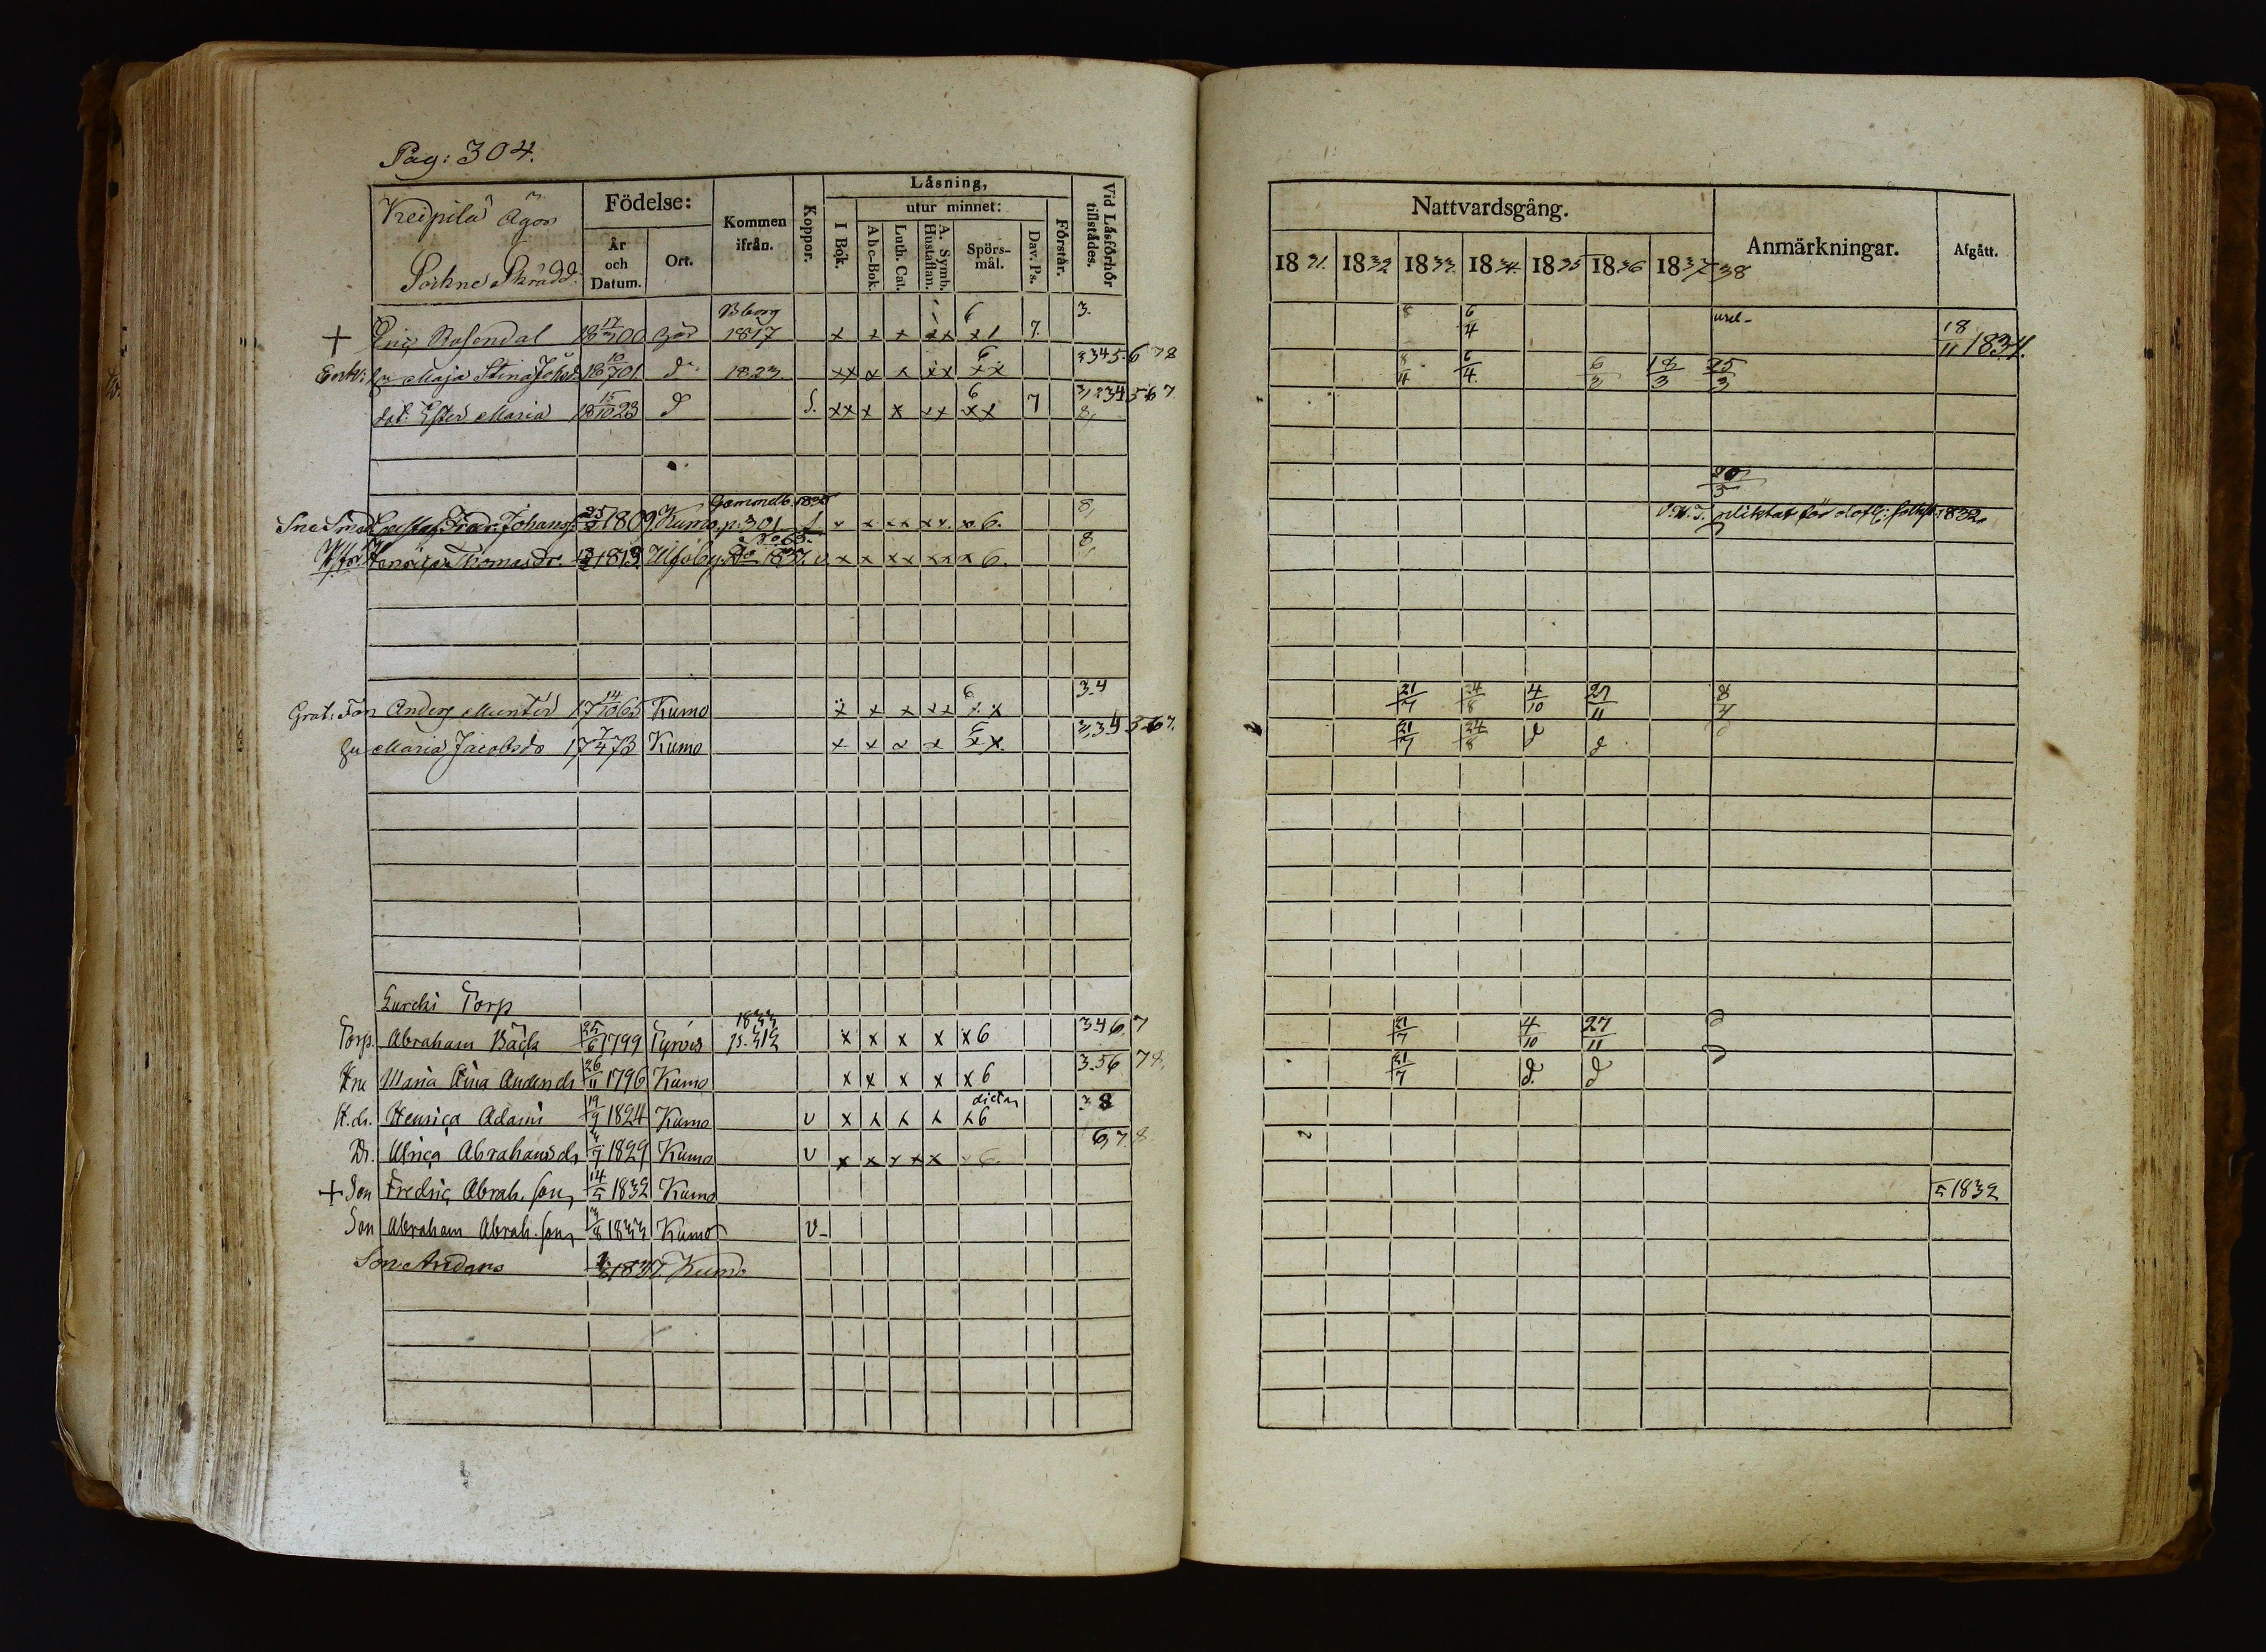 Pag: 304.
Keipilä Ägor
Sockne Skrädd.
Födelse:
År och Datum.
Ort.
Kommen ifrån.
Koppor.
Läsning,
I Bok.
utur minnet:
Abc-Bok.
Luth. Cat.
A. Symb. Hustaflan.
Spörsmål.
Dav. Ps.
Förstår.
Vid Läsförhör tillstädes.
Nattvardsgång.
1831. 1832 1833. 1834. 1835 1836 1837 38
Anmärkningar.
Afgått.
+ Eric Rosendal 18 17/3 00 Bborg 1817 x x x xx x1 7. 3. 8 6/4 18/11 1834.
Enk: hu Maja Stina Johsd. 18 10/7 01. d° 1823. xx x x xx 6 xx 2 3 4 5. 6 7 8 8/4 6/4. 6/3 18/3 25/3
dot. Ester Maria 18 15/10 23 d S. xx x x xx 6 xx 7 3, 2 3 4 5 6 7 8,
20/3
Gustaf Fredr. Johans. 25/2 1809 Kumo, p. 301 x x xx xx. x 6. 8, pliktat för 1832.
Henrica Thomasdr. 1813. Ulfsby No 63. 1837. v x x xx xx x 6. 8,
Anders Munter 17 14/10 65 Kumo x x x xx 6 x x 3.4 21/7 24/8 4/10 27/11 8/4
hu Maria Jacobsdo 17 7/4 73 Kumo x x x x 6 x x. 2, 3 4 5 6 7. 21/7 24/8 d d
Lurcki Torp
Torp. Abraham Bäck 25/6 1799 Tyrvis 1833 p. 212 x x x x x 6 3 4 6, 7 21/7 4/10 27/11
Hu Maria Lisa Andersdr 26/11 1796 Kumo x x x x x 6 3. 5 6 7 8, 21/7 d. d
H.dr. Henrica Adami 19/9 1824 Kumo v x x x x x 6 3 8
Dr. Ulrica Abrahamsdr 4/7 1829 Kumo v x x x x x x 6. 6, 7 8
+ Son Fredric Abrah. son 14/5 1832 Kumo 1832
Son Abraham Abrah. son 3/8 1833 Kumo v
Son Anders 1837. Kumo